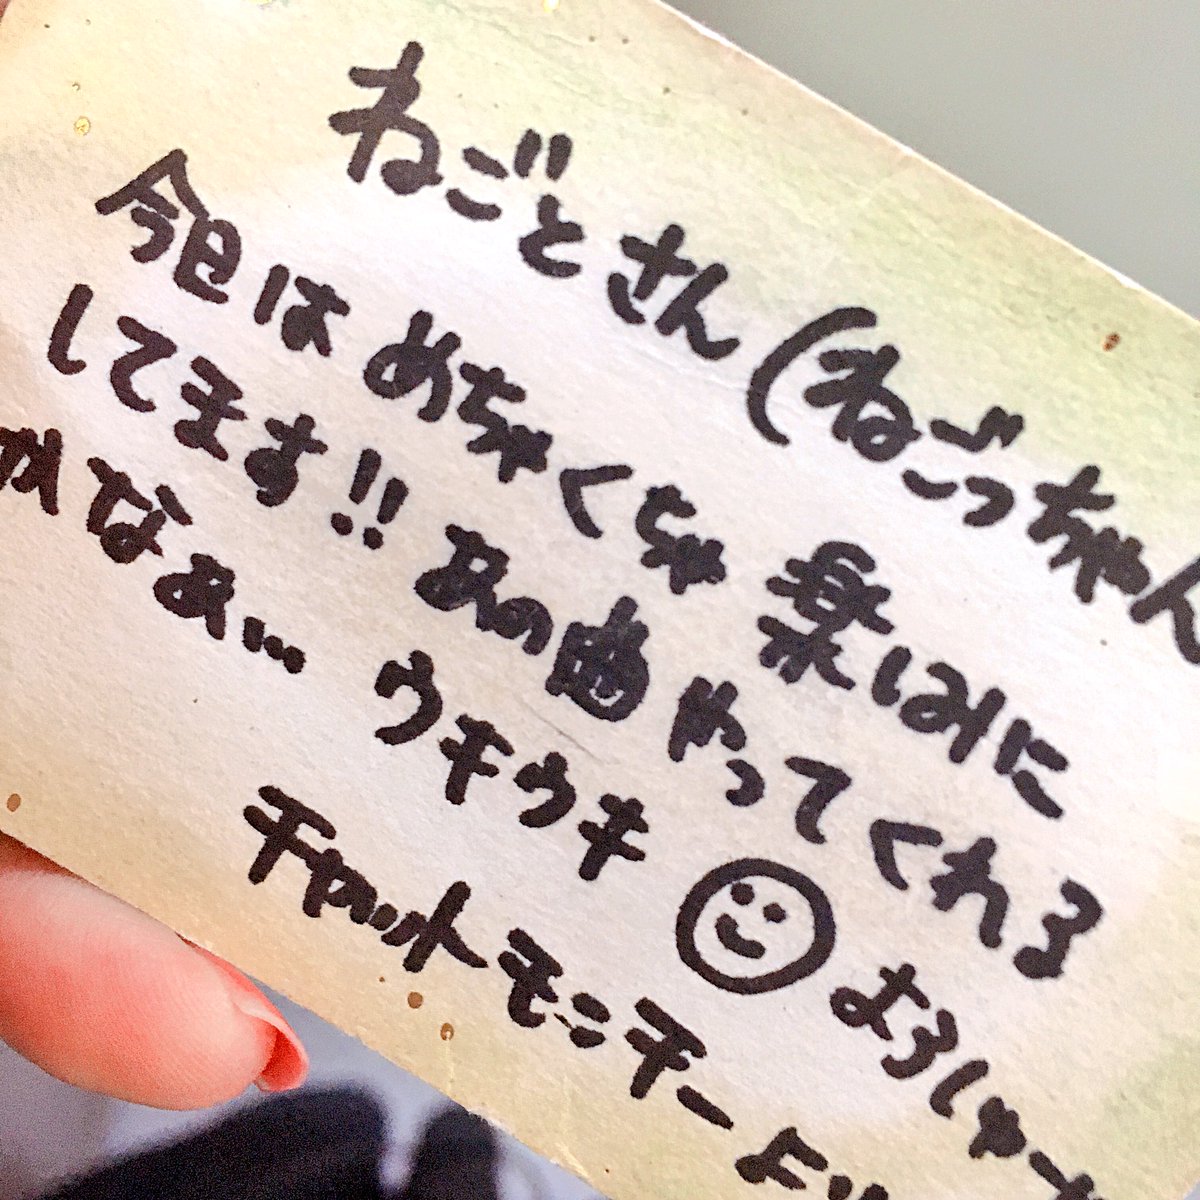 ねごとさん(ねごっちゃん
今日はめちゃくちゃ楽しみに
してます!! あの曲やってくれる
かなぁ… ウキウキ よろしゅー
チャットモンチーより